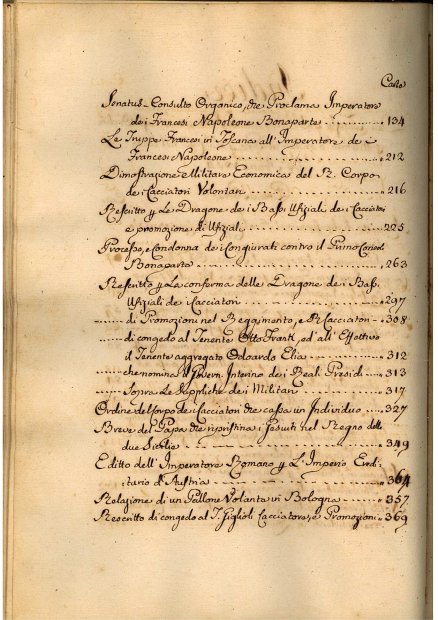 Carte
Senatus-Consulto Organico, che Proclama Imperatore
dei Francesi Napoleone Bonaparte ........ 134
Le Truppe Francesi in Toscana all' Imperatore de i
Francesi Napoleone ........ 212
Dimostrazione Militare Economica del R. Corpo
de i Cacciatori Volontari ........ 216
Rescritto p Le Dragone de i Bassi Ufiziali de i Cacciatori
e promozione di Ufiziali ........ 225
Processo, e Condanna de i Congiurati contro il Primo Console
Bonaparte ........ 263
Rescritto p La conferma delle Dragone de i Bassi
Ufiziali de i Cacciatori ........ 297
di Promozioni nel Reggimento, e Cacciatori 308
di congedo al Tenente Otto ed all' Effettivo
il Tenente aggregato Odoardo Elia ........ 312
che nomina il Govern. Interino de i Reali Presidi .... 313
Sopra Le Suppliche de i Militari ........ 317
Ordine del Corpo de i Cacciatori che cassa un Individuo .... 327
Breve del Papa che ripristina i Gesuiti nel Regno delle
due Sicilie ........ 349
Editto dell' Imperatore Romano p L' Imperio Eredi-
tario d' Austria ........ 364
Relazione di un Pallone Volante in Bologna ........ 357
Rescritto di congedo al T. Giglioli Cacciatore, e Promozioni 369